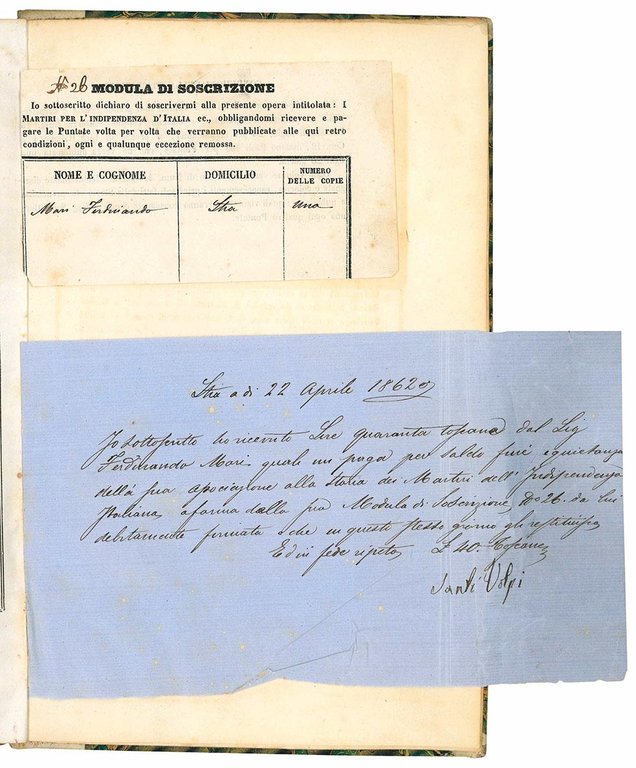 No 26 MODULA DI SOSCRIZIONE
Io sottoscritto dichiaro di soscrivermi alla presente opera intitolata: I
MARTIRI PER L'INDIPENDENZA D'ITALIA ec., obbligandomi ricevere e pa-
gare le Puntate volta per volta che verranno pubblicate alle qui retro
condizioni, ogni e qualunque eccezione remossa.
NOME E COGNOME DOMICILIO NUMERO
DELLE COPIE
Mari Ferdinando Stia una
Stia a di 22 Aprile 1862
Io sottoscritto ho ricevuto Lire quaranta toscane dal Sig
Ferdinando Mari quali mi paga per saldo fine e quietanza
della sua Associazione alla storia dei Martiri dell'Indipendenza
Italiana, a forma della sua Modula di Soscrizione No 26. da Lui
debitamente firmata e che in questo stesso giorno gli restituisco
Ed in fede ripeto £ 40. Toscane
Santi Volpi